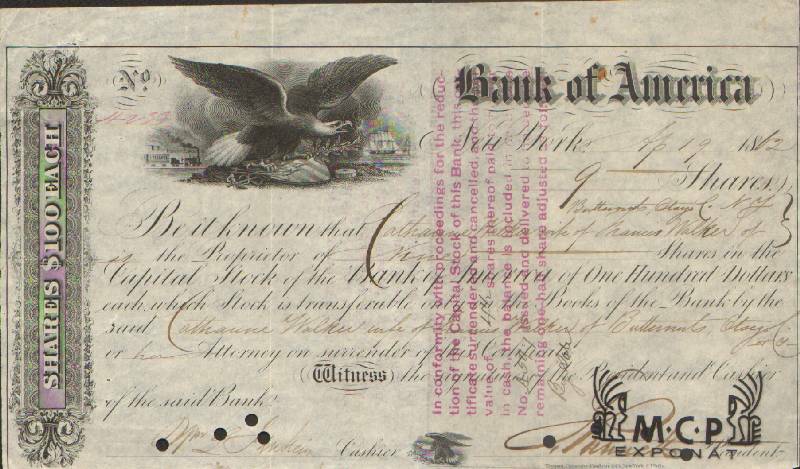 No.
Bank of America
New York, Sep 19 1862
9 Shares,
Butternuts Otsego Co. N.Y.
Be it known that Catharine Walker wife of Francis Walker of
is the Proprietor of Nine Shares in the
Capital Stock of the Bank of America of One Hundred Dollars
each, which Stock is transferable only on the Books of the Bank by the
said Catharine Walker wife of Francis Walker of Butternuts, Otsego Co
or her Attorney on surrender of this Certificate.
Witness the signatures of the President and Cashier
of the said Bank.
Cashier
President
SHARES $100 EACH
In conformity with proceedings for the reduc-
tion of the Capital Stock of this Bank, this
tificate surrendered and cancelled, and the
value of shares thereof paid
in cash, the balance is included in
No. issued and delivered
remaining one-half share adjusted
M·C·P
EXPONAT